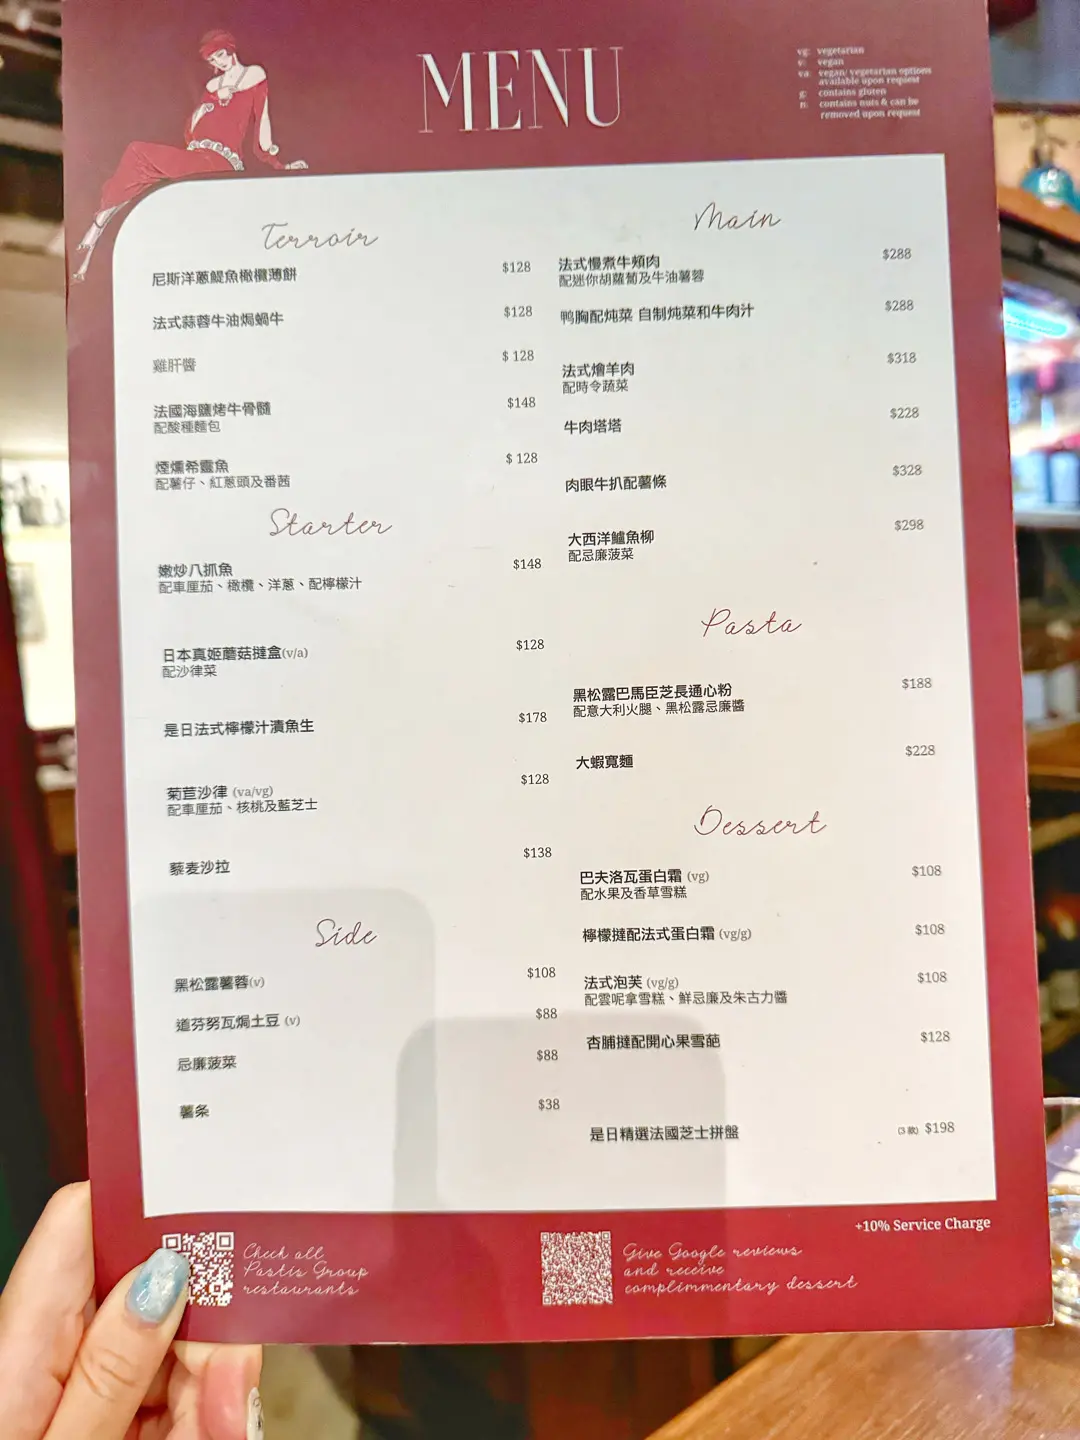 MENU
vg: vegetarian
v: vegan
va: vegan/vegetarian options
available upon request
g: contains gluten
n: contains nuts & can be
removed upon request
Terroir
尼斯洋蔥鯷魚橄欖薄餅 $128
法式蒜蓉牛油焗蝸牛 $128
雞肝醬 $ 128
法國海鹽烤牛骨髓 $148
配酸種麵包
煙燻希靈魚 $ 128
配薯仔、紅蔥頭及番茜
Starter
嫩炒八抓魚 $148
配車厘茄、橄欖、洋蔥、配檸檬汁
日本真姬蘑菇撻盒(v/a) $128
配沙律菜
是日法式檸檬汁漬魚生 $178
菊苣沙律 (va/vg) $128
配車厘茄、核桃及藍芝士
藜麦沙拉 $138
Side
黑松露薯蓉(v) $108
道芬努瓦焗土豆 (v) $88
忌廉菠菜 $88
薯条 $38
Main
法式慢煮牛頰肉 $288
配迷你胡蘿蔔及牛油薯蓉
鸭胸配炖菜 自制炖菜和牛肉汁 $288
法式燴羊肉 $318
配時令蔬菜
牛肉塔塔 $228
肉眼牛扒配薯條 $328
大西洋鱸魚柳 $298
配忌廉菠菜
Pasta
黑松露巴馬臣芝長通心粉 $188
配意大利火腿、黑松露忌廉醬
大蝦寬麵 $228
Dessert
巴夫洛瓦蛋白霜 (vg) $108
配水果及香草雪糕
檸檬撻配法式蛋白霜 (vg/g) $108
法式泡芙 (vg/g) $108
配雲呢拿雪糕、鮮忌廉及朱古力醬
杏脯撻配開心果雪葩 $128
是日精選法國芝士拼盤 (3 款) $198
+10% Service Charge
Check all
Pastis Group
restaurants
Give Google reviews
and receive
complimmentary dessert